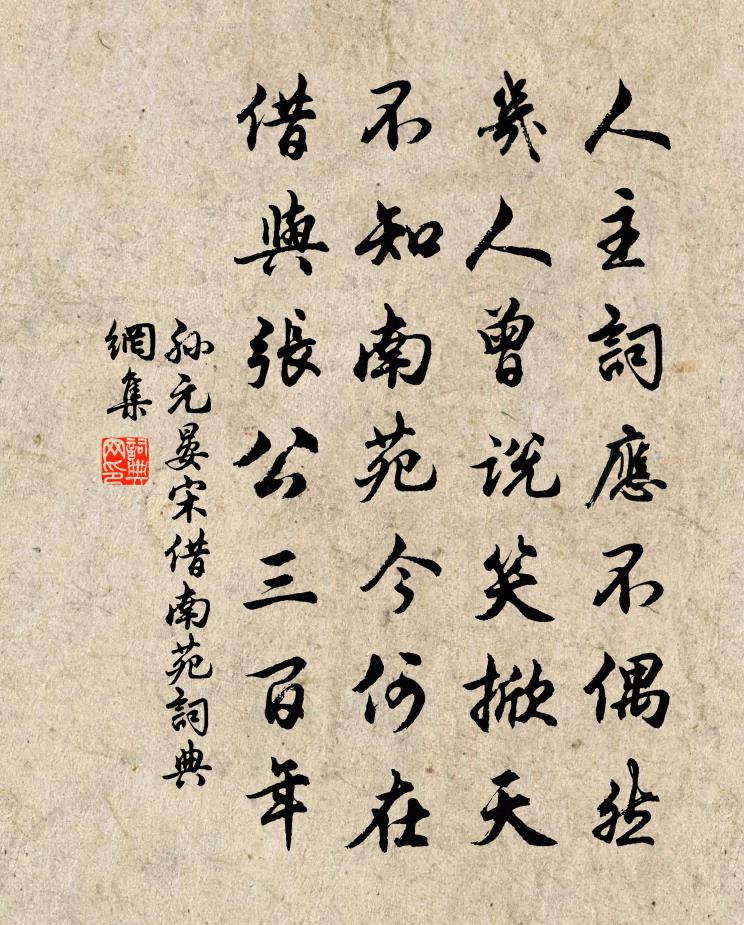 人主詞應不偶然
幾人曾説笑掀天
不知南苑今何在
借與張公三百年
孫元晏宋借南苑詞典
網集
詞典網印